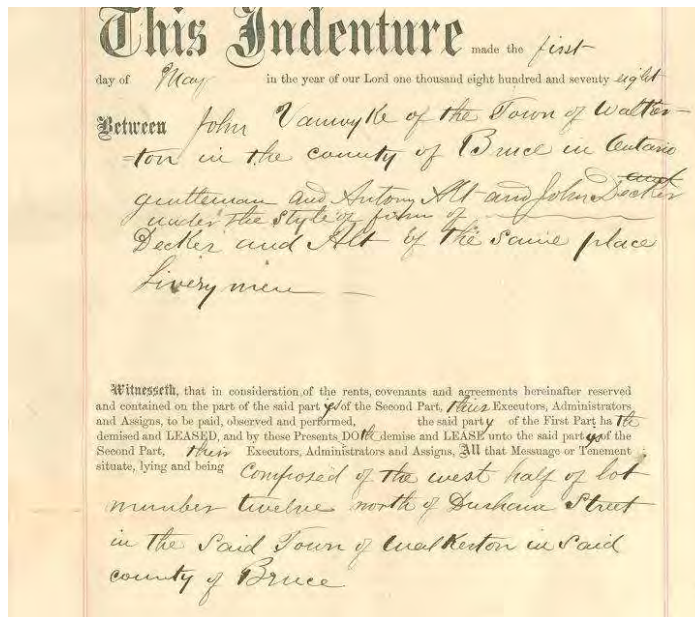 This Indenture made the first
day of May in the year of our Lord one thousand eight hundred and seventy eight
Between John Vanwyke of the Town of Walker-
=ton in the county of Bruce in Ontario
and
gentleman and Antony Alt and John Decker
under the style or firm of
Decker and Alt of the same place
Livery men —
Witnesseth, that in consideration of the rents, covenants and agreements hereinafter reserved
and contained on the part of the said partys of the Second Part, their Executors, Administrators
and Assigns, to be paid, observed and performed, the said party of the First Part hath
demised and LEASED, and by these Presents DOth demise and LEASE unto the said partys of the
Second Part, their Executors, Administrators and Assigns, All that Message or Tenement
situate, lying and being composed of the west half of lot
number twelve north of Durham Street
in the Said Town of Walkerton in Said
county of Bruce